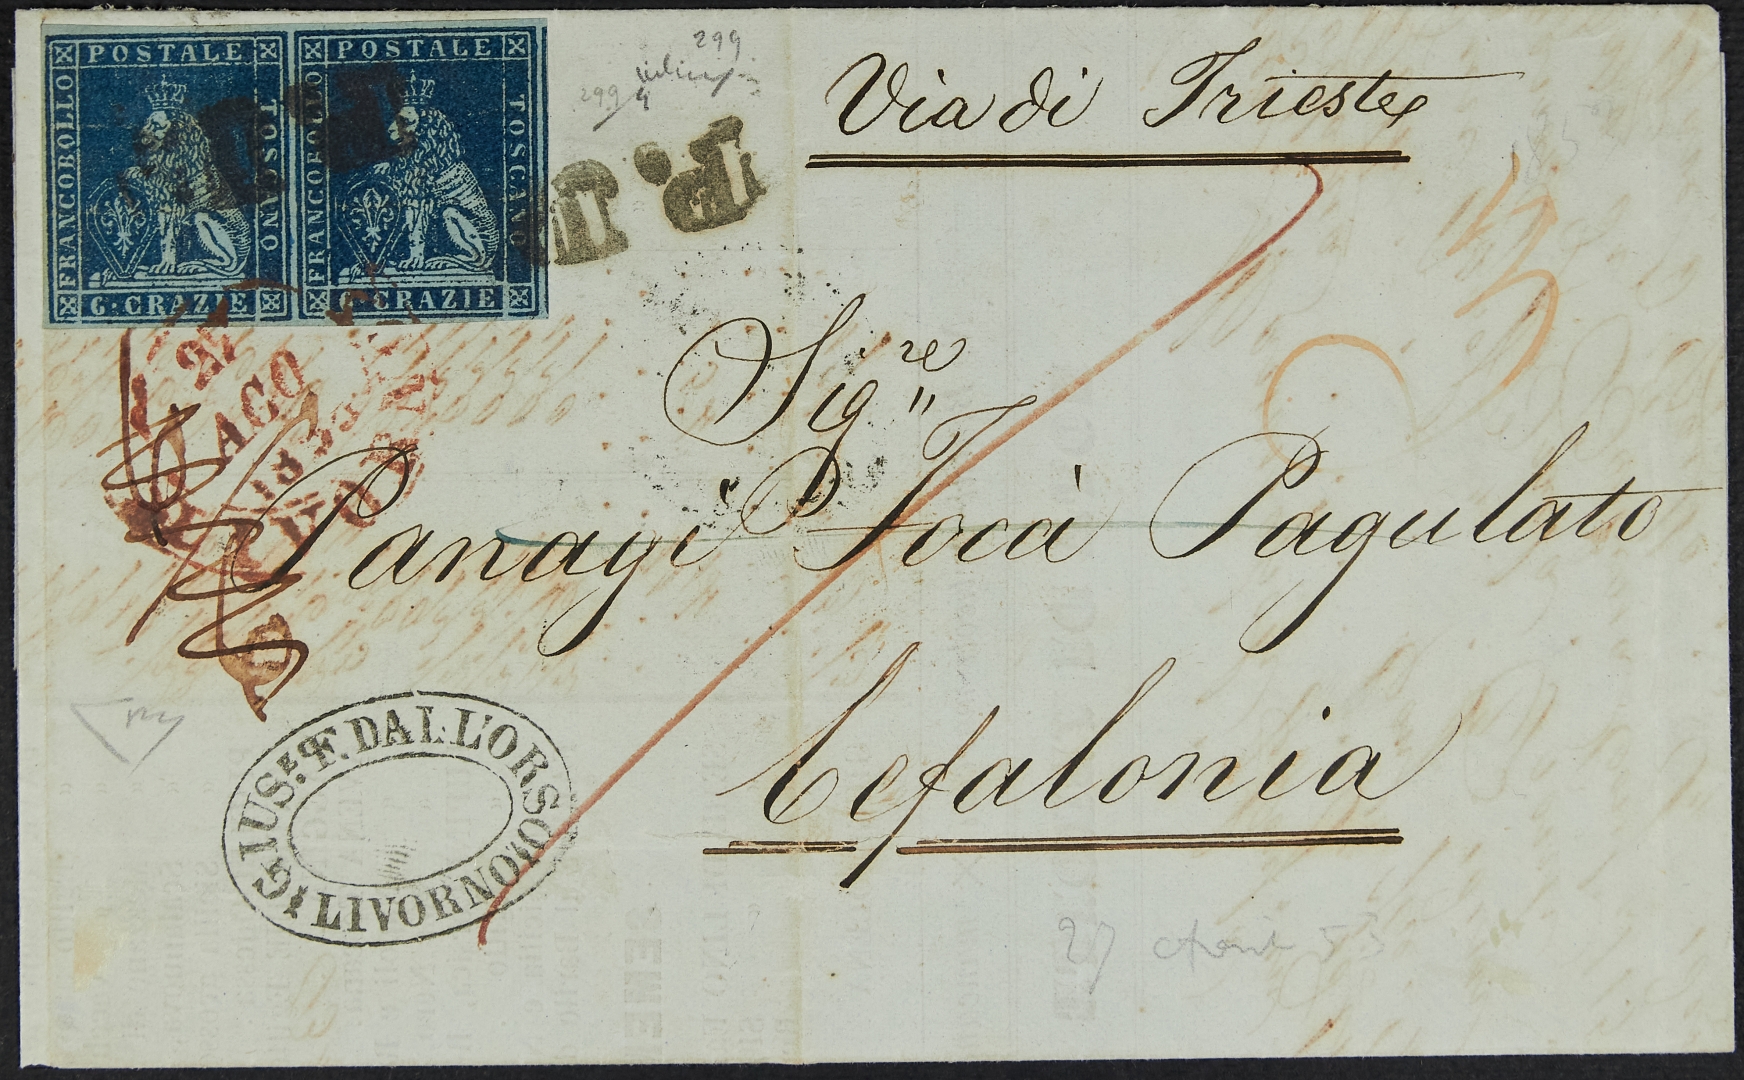 POSTALE
FRANCOBOLLO
TOSCANO
6: CRAZIE
POSTALE
FRANCOBOLLO
TOSCANO
6: CRAZIE
299
299
P. D.
P. D.
Via di Trieste
27
AGO
1853
LIVORNO
Sig.re
Panagi Focà Pagulato
Cefalonia
GIUS.E F. DALL'ORSO
LIVORNO
27
53